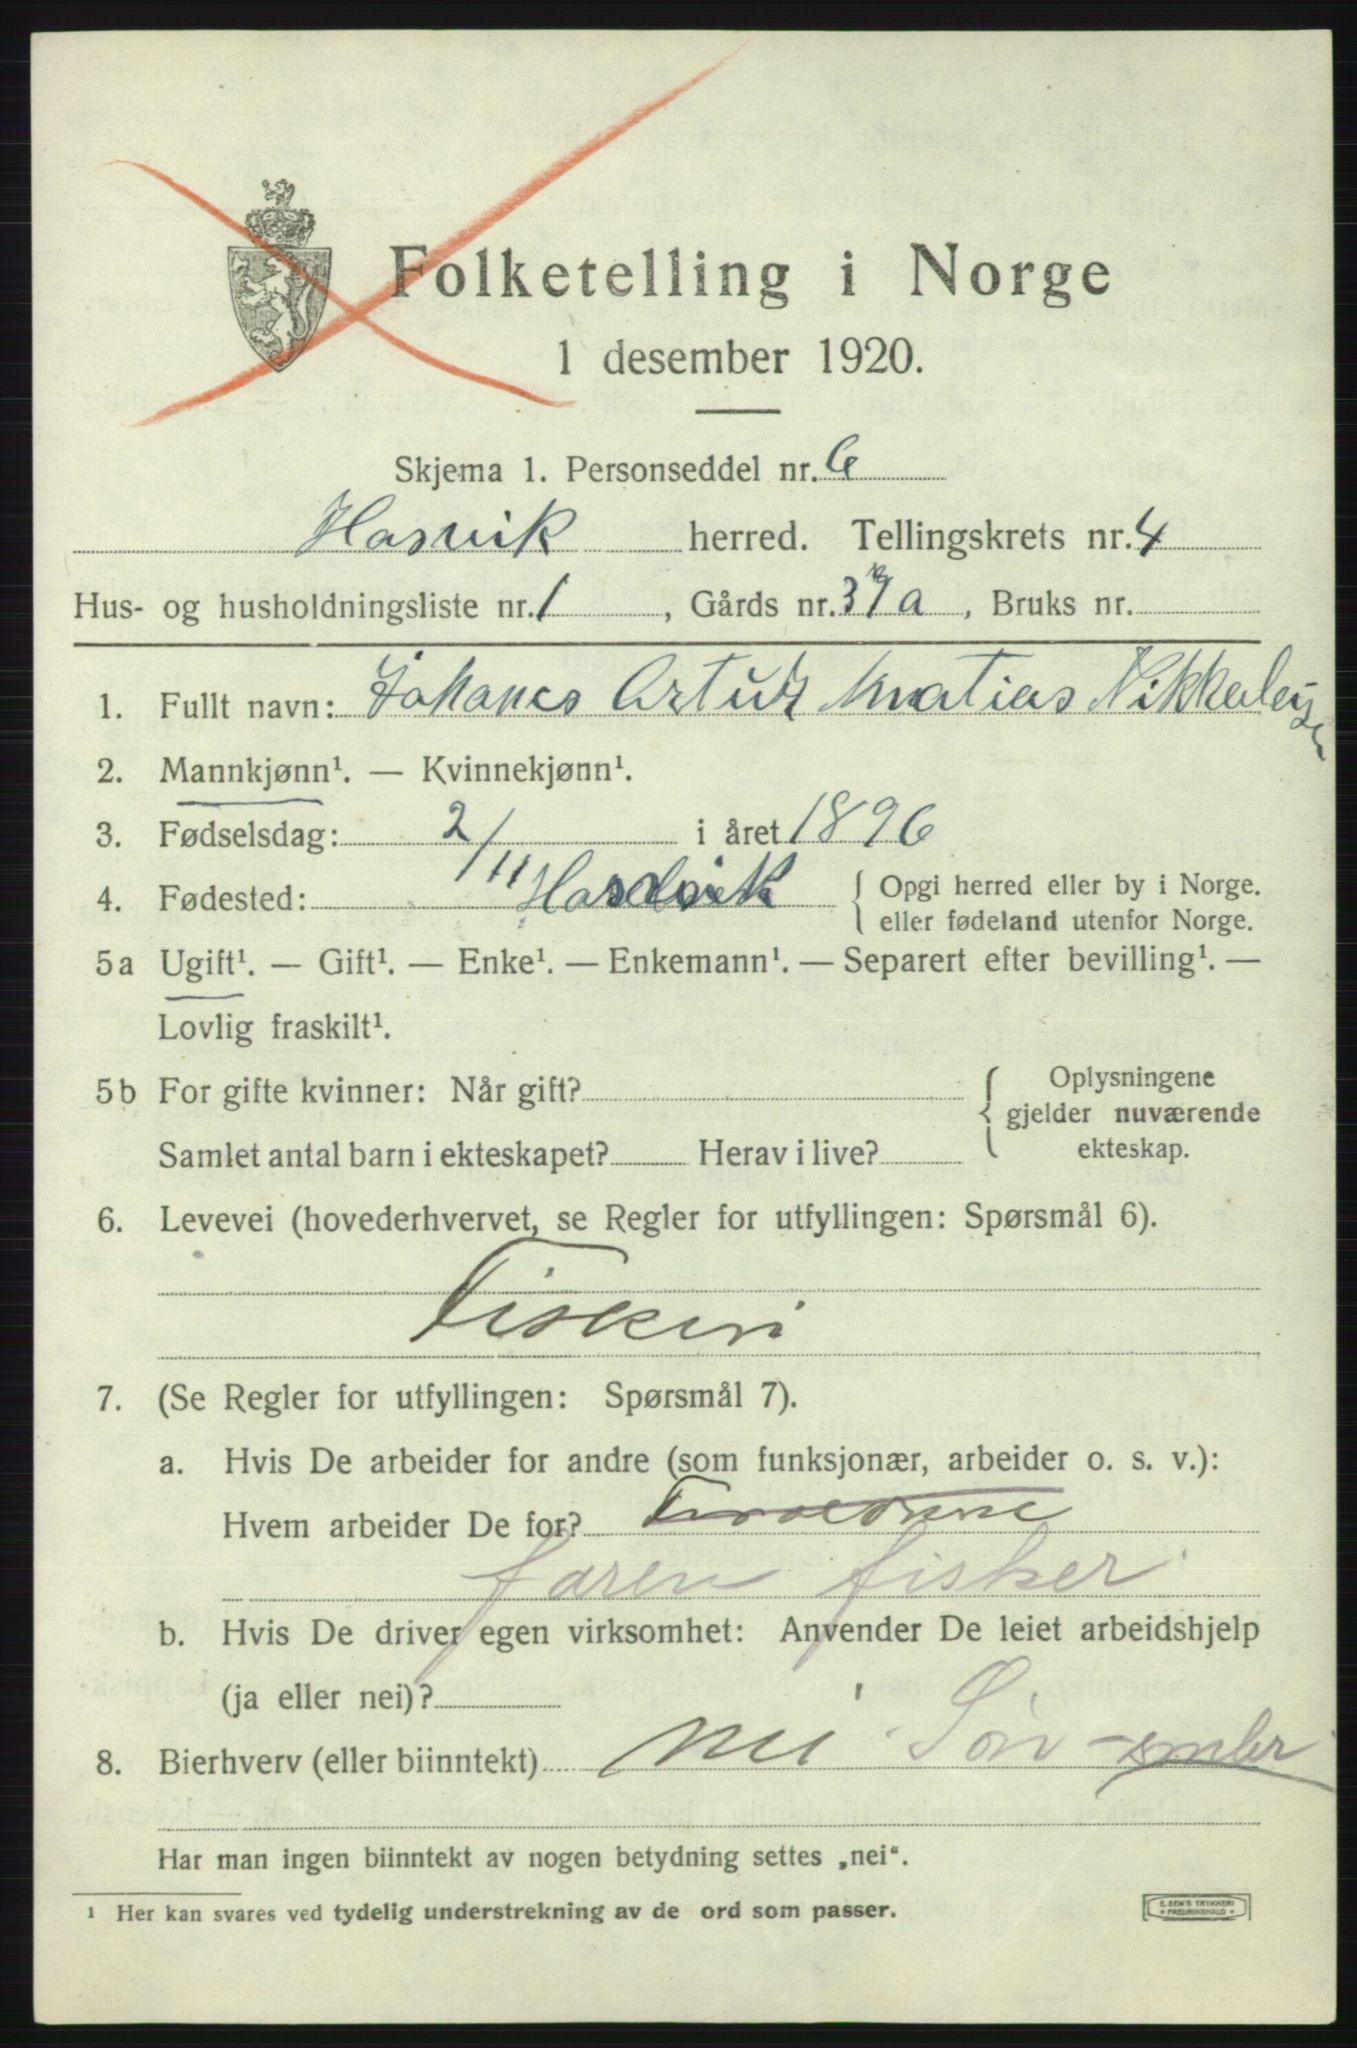 Folketelling i Norge
1 desember 1920.
Skjema 1. Personseddel nr. 6
Hasvik herred. Tellingskrets nr. 4
Hus- og husholdningsliste nr. 1, Gårds nr. 37a, Bruks nr.
1. Fullt navn: Johanes Artur Matias Nikkelaysen
2. Mannkjønn¹. — Kvinnekjønn¹.
3. Fødselsdag: 2/11 i året 1896
4. Fødested: Hasvik { Opgi herred eller by i Norge.
eller fødeland utenfor Norge.
5a Ugift¹. — Gift¹. — Enke¹. — Enkemann¹. — Separert efter bevilling¹. —
Lovlig fraskilt¹.
5b For gifte kvinner: Når gift? { Oplysningene
gjelder nuværende
Samlet antal barn i ekteskapet? Herav i live? ekteskap.
6. Levevei (hovederhvervet, se Regler for utfyllingen: Spørsmål 6).
Fiskeri
7. (Se Regler for utfyllingen: Spørsmål 7).
a. Hvis De arbeider for andre (som funksjonær, arbeider o. s. v.):
Hvem arbeider De for?
faren fisker
b. Hvis De driver egen virksomhet: Anvender De leiet arbeidshjelp
(ja eller nei)?
8. Bierhverv (eller biinntekt) nei Søn
Har man ingen biinntekt av nogen betydning settes „nei“.
¹ Her kan svares ved tydelig understrekning av de ord som passer.
E. SEM'S TRYKKERI
FREDRIKSHALD